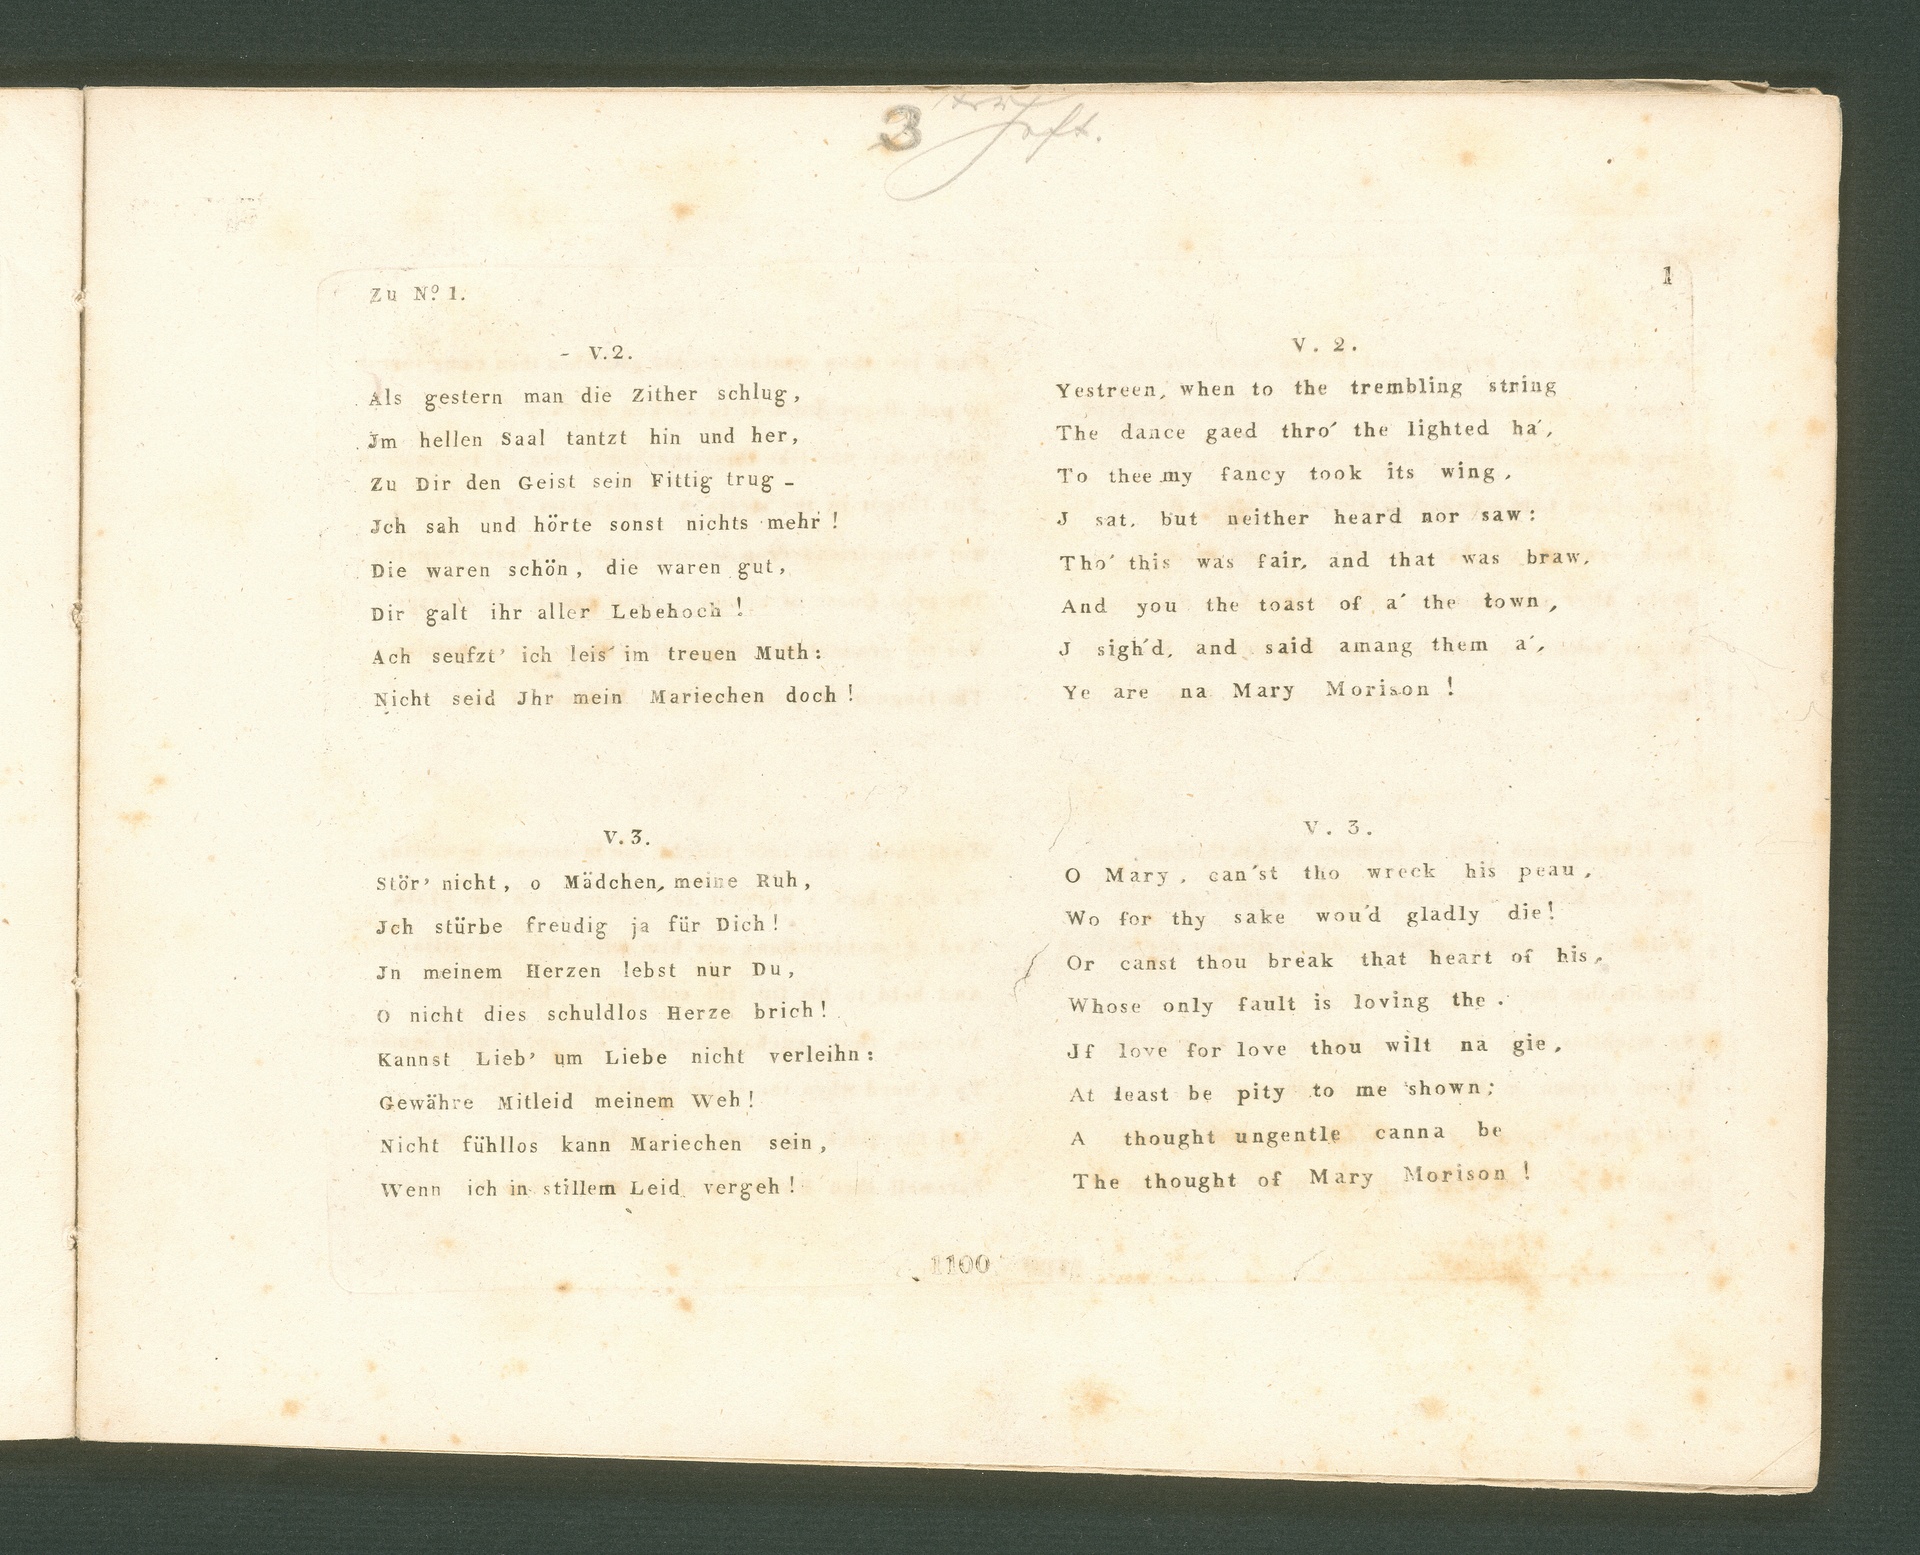 3 Heft.
1
Zu No 1.
V. 2.
Als gestern man die Zither schlug,
Jm hellen Saal tantzt hin und her,
Zu Dir den Geist sein Fittig trug –
Jch sah und hörte sonst nichts mehr !
Die waren schön, die waren gut,
Dir galt ihr aller Lebehoch !
Ach seufzt' ich leis' im treuen Muth:
Nicht seid Jhr mein Mariechen doch !
V. 3.
Stör' nicht, o Mädchen, meine Ruh,
Jch stürbe freudig ja für Dich !
Jn meinem Herzen lebst nur Du,
O nicht dies schuldlos Herze brich !
Kannst Lieb' um Liebe nicht verleihn:
Gewähre Mitleid meinem Weh !
Nicht fühllos kann Mariechen sein,
Wenn ich in stillem Leid vergeh !
V. 2.
Yestreen, when to the trembling string
The dance gaed thro' the lighted ha',
To thee my fancy took its wing,
J sat, but neither heard nor saw:
Tho' this was fair, and that was braw,
And you the toast of a' the town,
J sigh'd, and said amang them a',
Ye are na Mary Morison !
V. 3.
O Mary, can'st tho wreck his peau,
Wo for thy sake wou'd gladly die!
Or canst thou break that heart of his,
Whose only fault is loving the.
Jf love for love thou wilt na gie,
At least be pity to me shown;
A thought ungentle canna be
The thought of Mary Morison !
1100